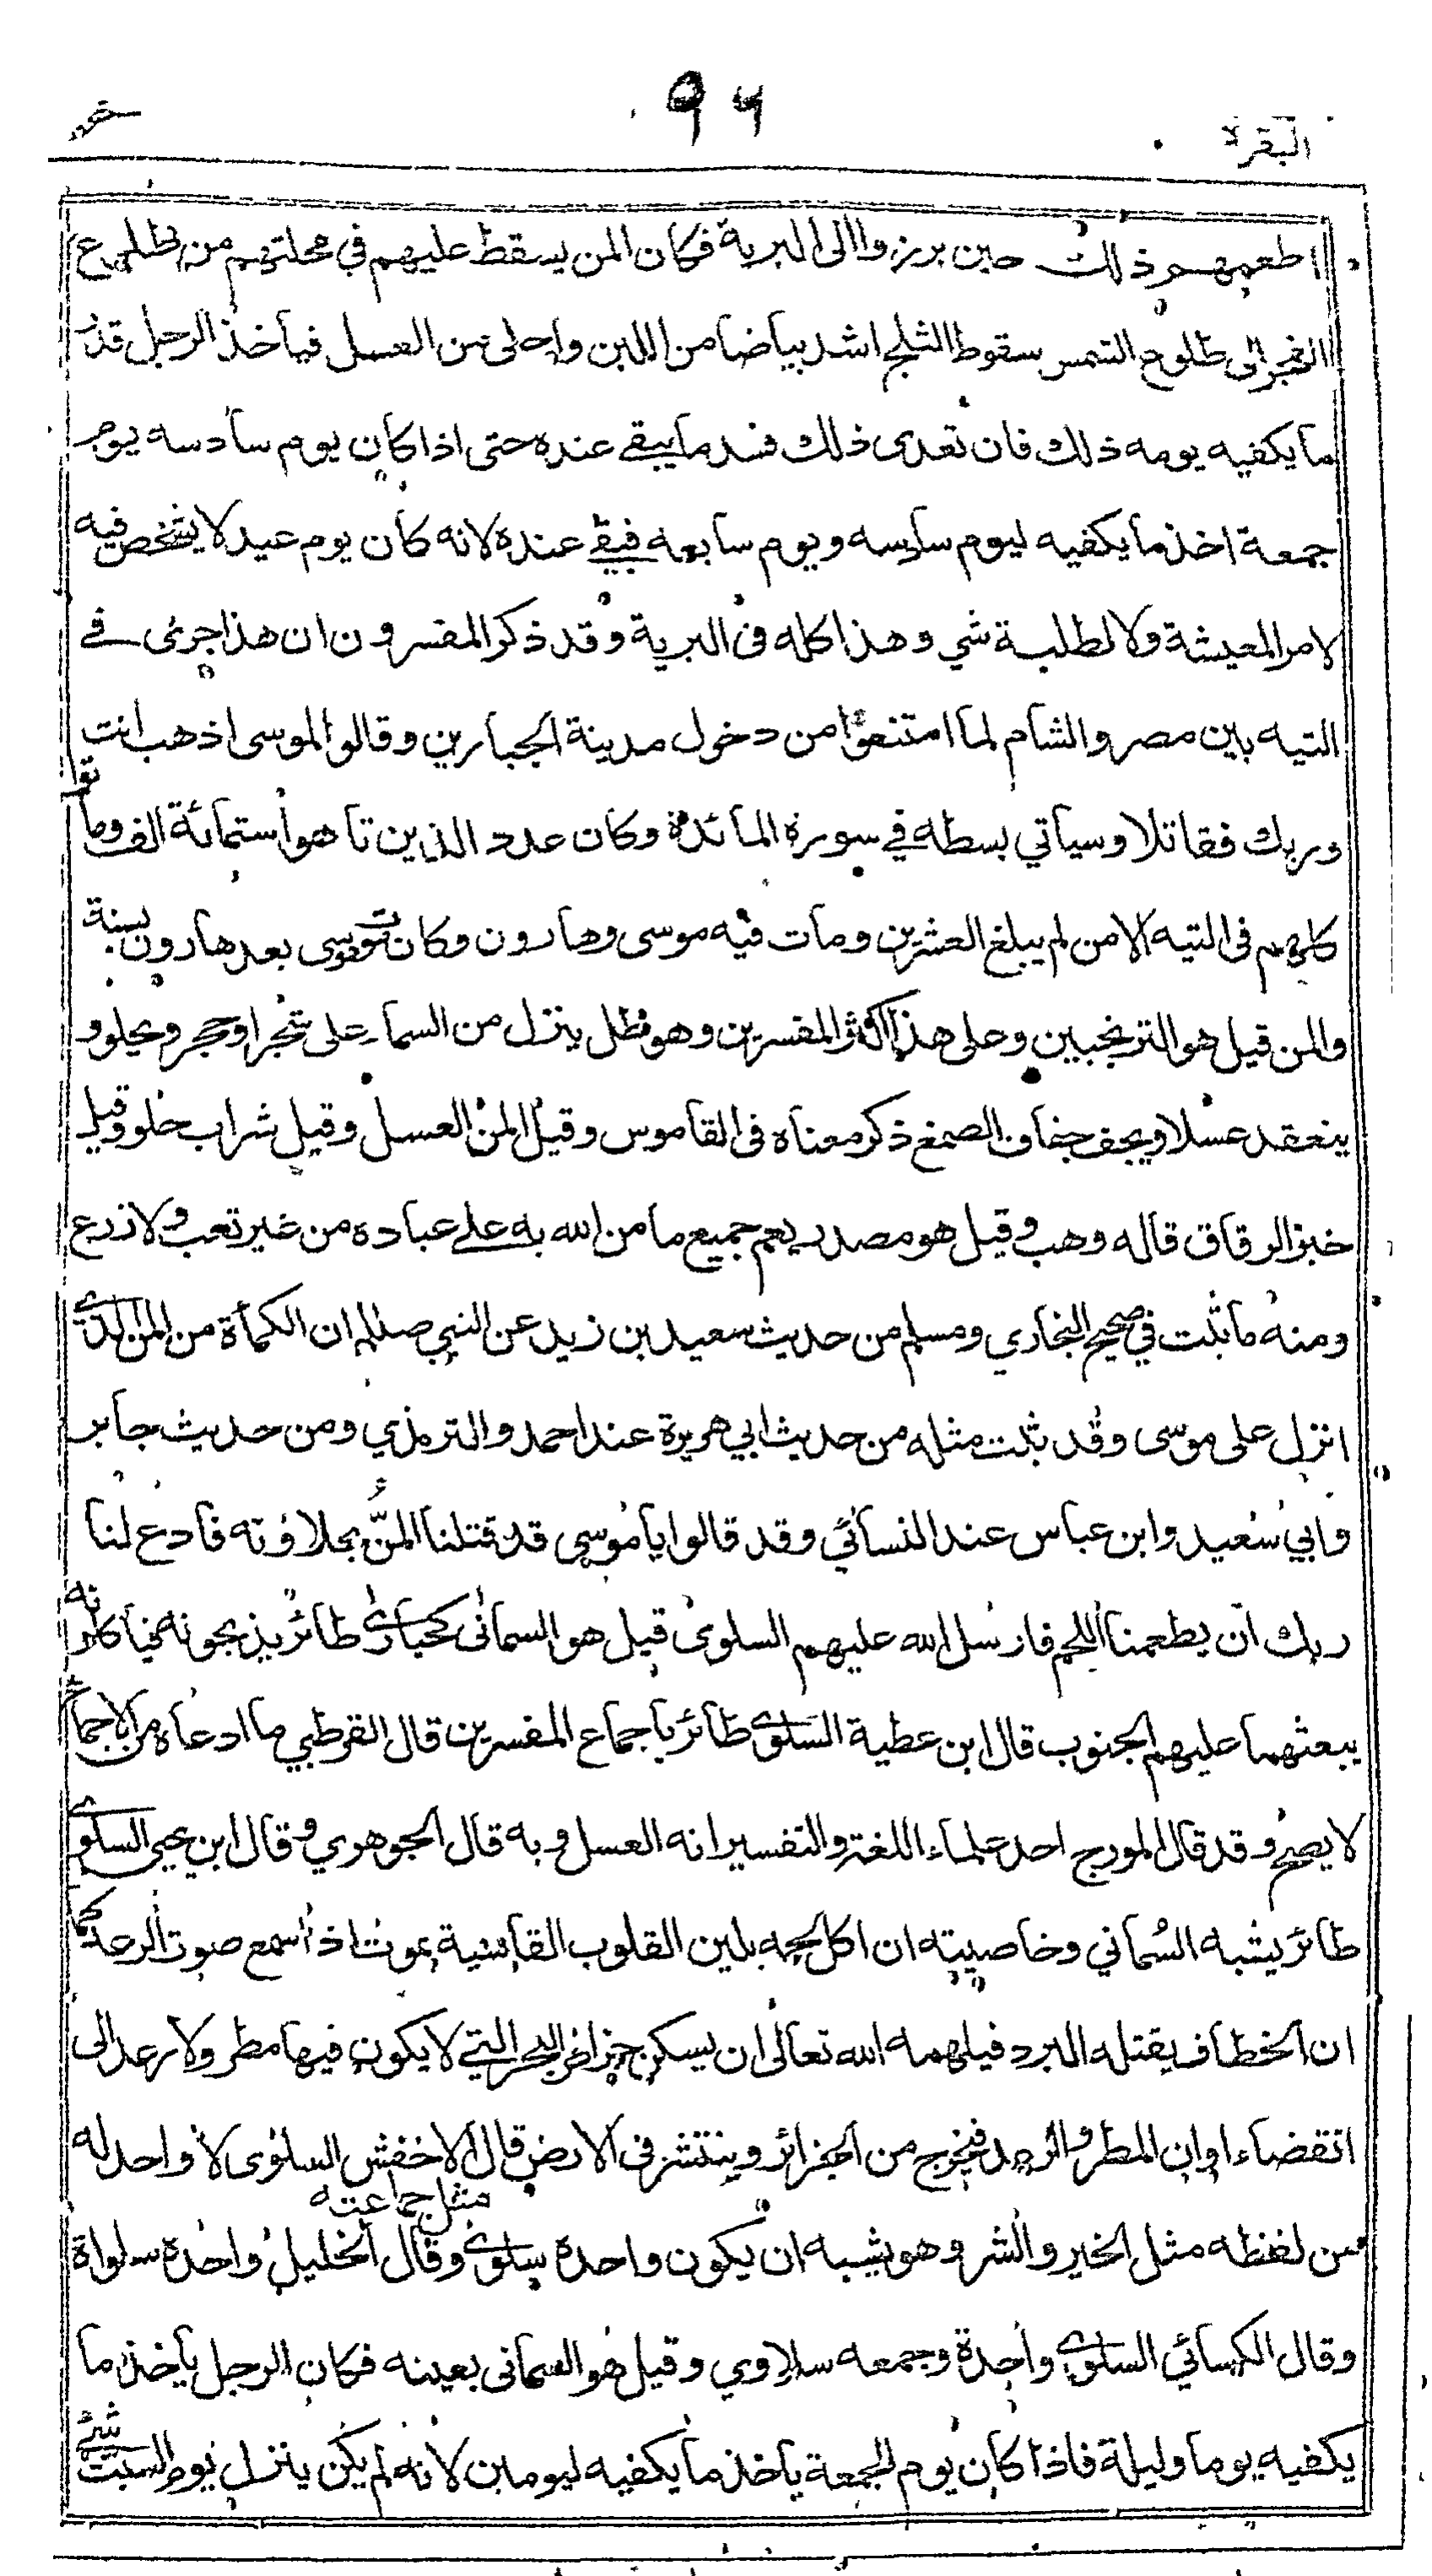 البقرة
٩٦
اطعمهم ذلك حين برزوا الى البرية فكان المن يسقط عليهم في محلتهم من طلوع
الفجر الى طلوع الشمس سقوط الثلج اشد بياضا من اللبن واحلى من العسل فيأخذ الرجل قدر
ما يكفيه يومه ذلك فان تعدى ذلك فسد ما يبقے عنده حتى اذا كان يوم سادسه يوم
جمعة اخذ ما يكفيه ليوم سادسه ويوم سابعه فبقے عنده لانه كان يوم عيد لا يشخص فيه
لامر المعيشة ولا لطلبة شي وهذا كله في البرية وقد ذكر المفسرون ان هذا جرى في
التيه بين مصر والشام لما امتنعوا من دخول مدينة الجبارين وقالوا لموسى اذهب انت
وربك فقاتلا وسيأتي بسطه في سورة المائدة وكان عدد الذين تاهوا ستمائة الف وماتوا
كلهم في التيه الا من لم يبلغ العشرين ومات فيه موسى وهارون وكان موت موسى بعد هارون بسنة
والمن قيل هو الترنجبين وعلى هذا اكثر المفسرين وهو طل ينزل من السماء على شجر او حجر ويحلو و
ينعقد عسلا ويجف جفاف الصمغ ذكر معناه في القاموس وقيل المن العسل وقيل شراب حلو وقيل
خبز الرقاق قاله وهب وقيل هو مصدر يعم جميع ما من الله به علے عباده من غير تعب ولا زرع
ومنه ما ثبت في صحيح البخاري ومسلم من حديث سعيد بن زيد عن النبي صللم ان الكمأة من المن الذي
انزل على موسى وقد ثبت مثله من حديث ابي هريرة عند احمد والترمذي ومن حديث جابر
وابي سعيد وابن عباس عند النسائي وقد قالوا يا موسى قد قتلنا المنّ بحلاوته فادع لنا
ربك ان يطعمنا اللحم فارسل الله عليهم السلوى قيل هو السمانى كحبارى طائر يذبحونه فيأكلونه
يبعثهما عليهم الجنوب قال ابن عطية السلوى طائر باجماع المفسرين قال القرطبي ما ادعاه من الاجماع
لا يصح وقد قال المورج احد علماء اللغة والتفسير انه العسل وبه قال الجوهري وقال ابن يحيى السلوى
طائر يشبه السُماني وخاصيته ان اكل لحمه يلين القلوب القاسية يموت اذا سمع صوت الرعد كما
ان الخطاف يقتله البرد فيلهمه الله تعالى ان يسكن جزائر البحر التي لا يكون فيها مطر ولا رعد الى
انقضاء اوان المطر والرعد فيخرج من الجزائر وينتشر في الارض قال الاخفش السلوى لا واحد له
من لفظه مثل الخير والشر وهو يشبه ان يكون واحده سلوى مثل جماعته وقال الخليل واحده سلواة
وقال الكسائي السلوى واحدة وجمعه سلاوي وقيل هو السماني بعينه فكان الرجل يأخذ ما
يكفيه يوما وليلة فاذا كان يوم الجمعة يأخذ ما يكفيه ليومين لانه لم يكن ينزل يوم السبت شئ